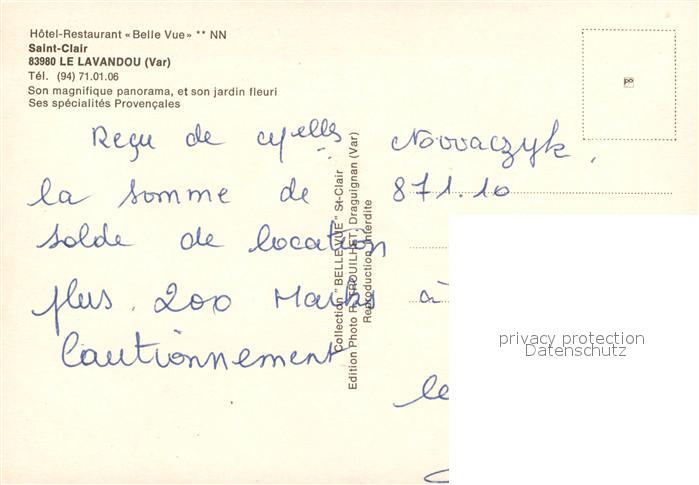 Hôtel-Restaurant «Belle Vue» ** NN
Saint-Clair
83980 LE LAVANDOU (Var)
Tél. (94) 71.01.06
Son magnifique panorama, et son jardin fleuri
Ses spécialités Provençales
Reçu de Novvaczyk,
la somme de 871.10
solde de location
plus 200 Marks à
Cautionnement
le
Collection "BELLE VUE" St-Clair
Edition Photo Draguignan (Var)
Reproduction Interdite
privacy protection
Datenschutz